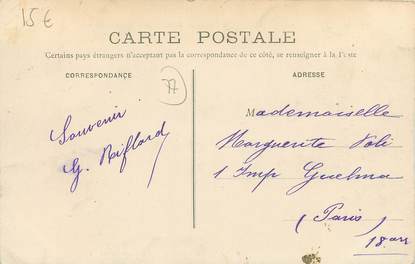 15€
CARTE POSTALE
Certains pays étrangers n'acceptant pas la correspondance de ce côté, se renseigner à la Poste
CORRESPONDANCE
ADRESSE
77
Souvenir
G. Riffard
Mademoiselle
Marguerite
1 Imp Guelma
(Paris)
18 arr